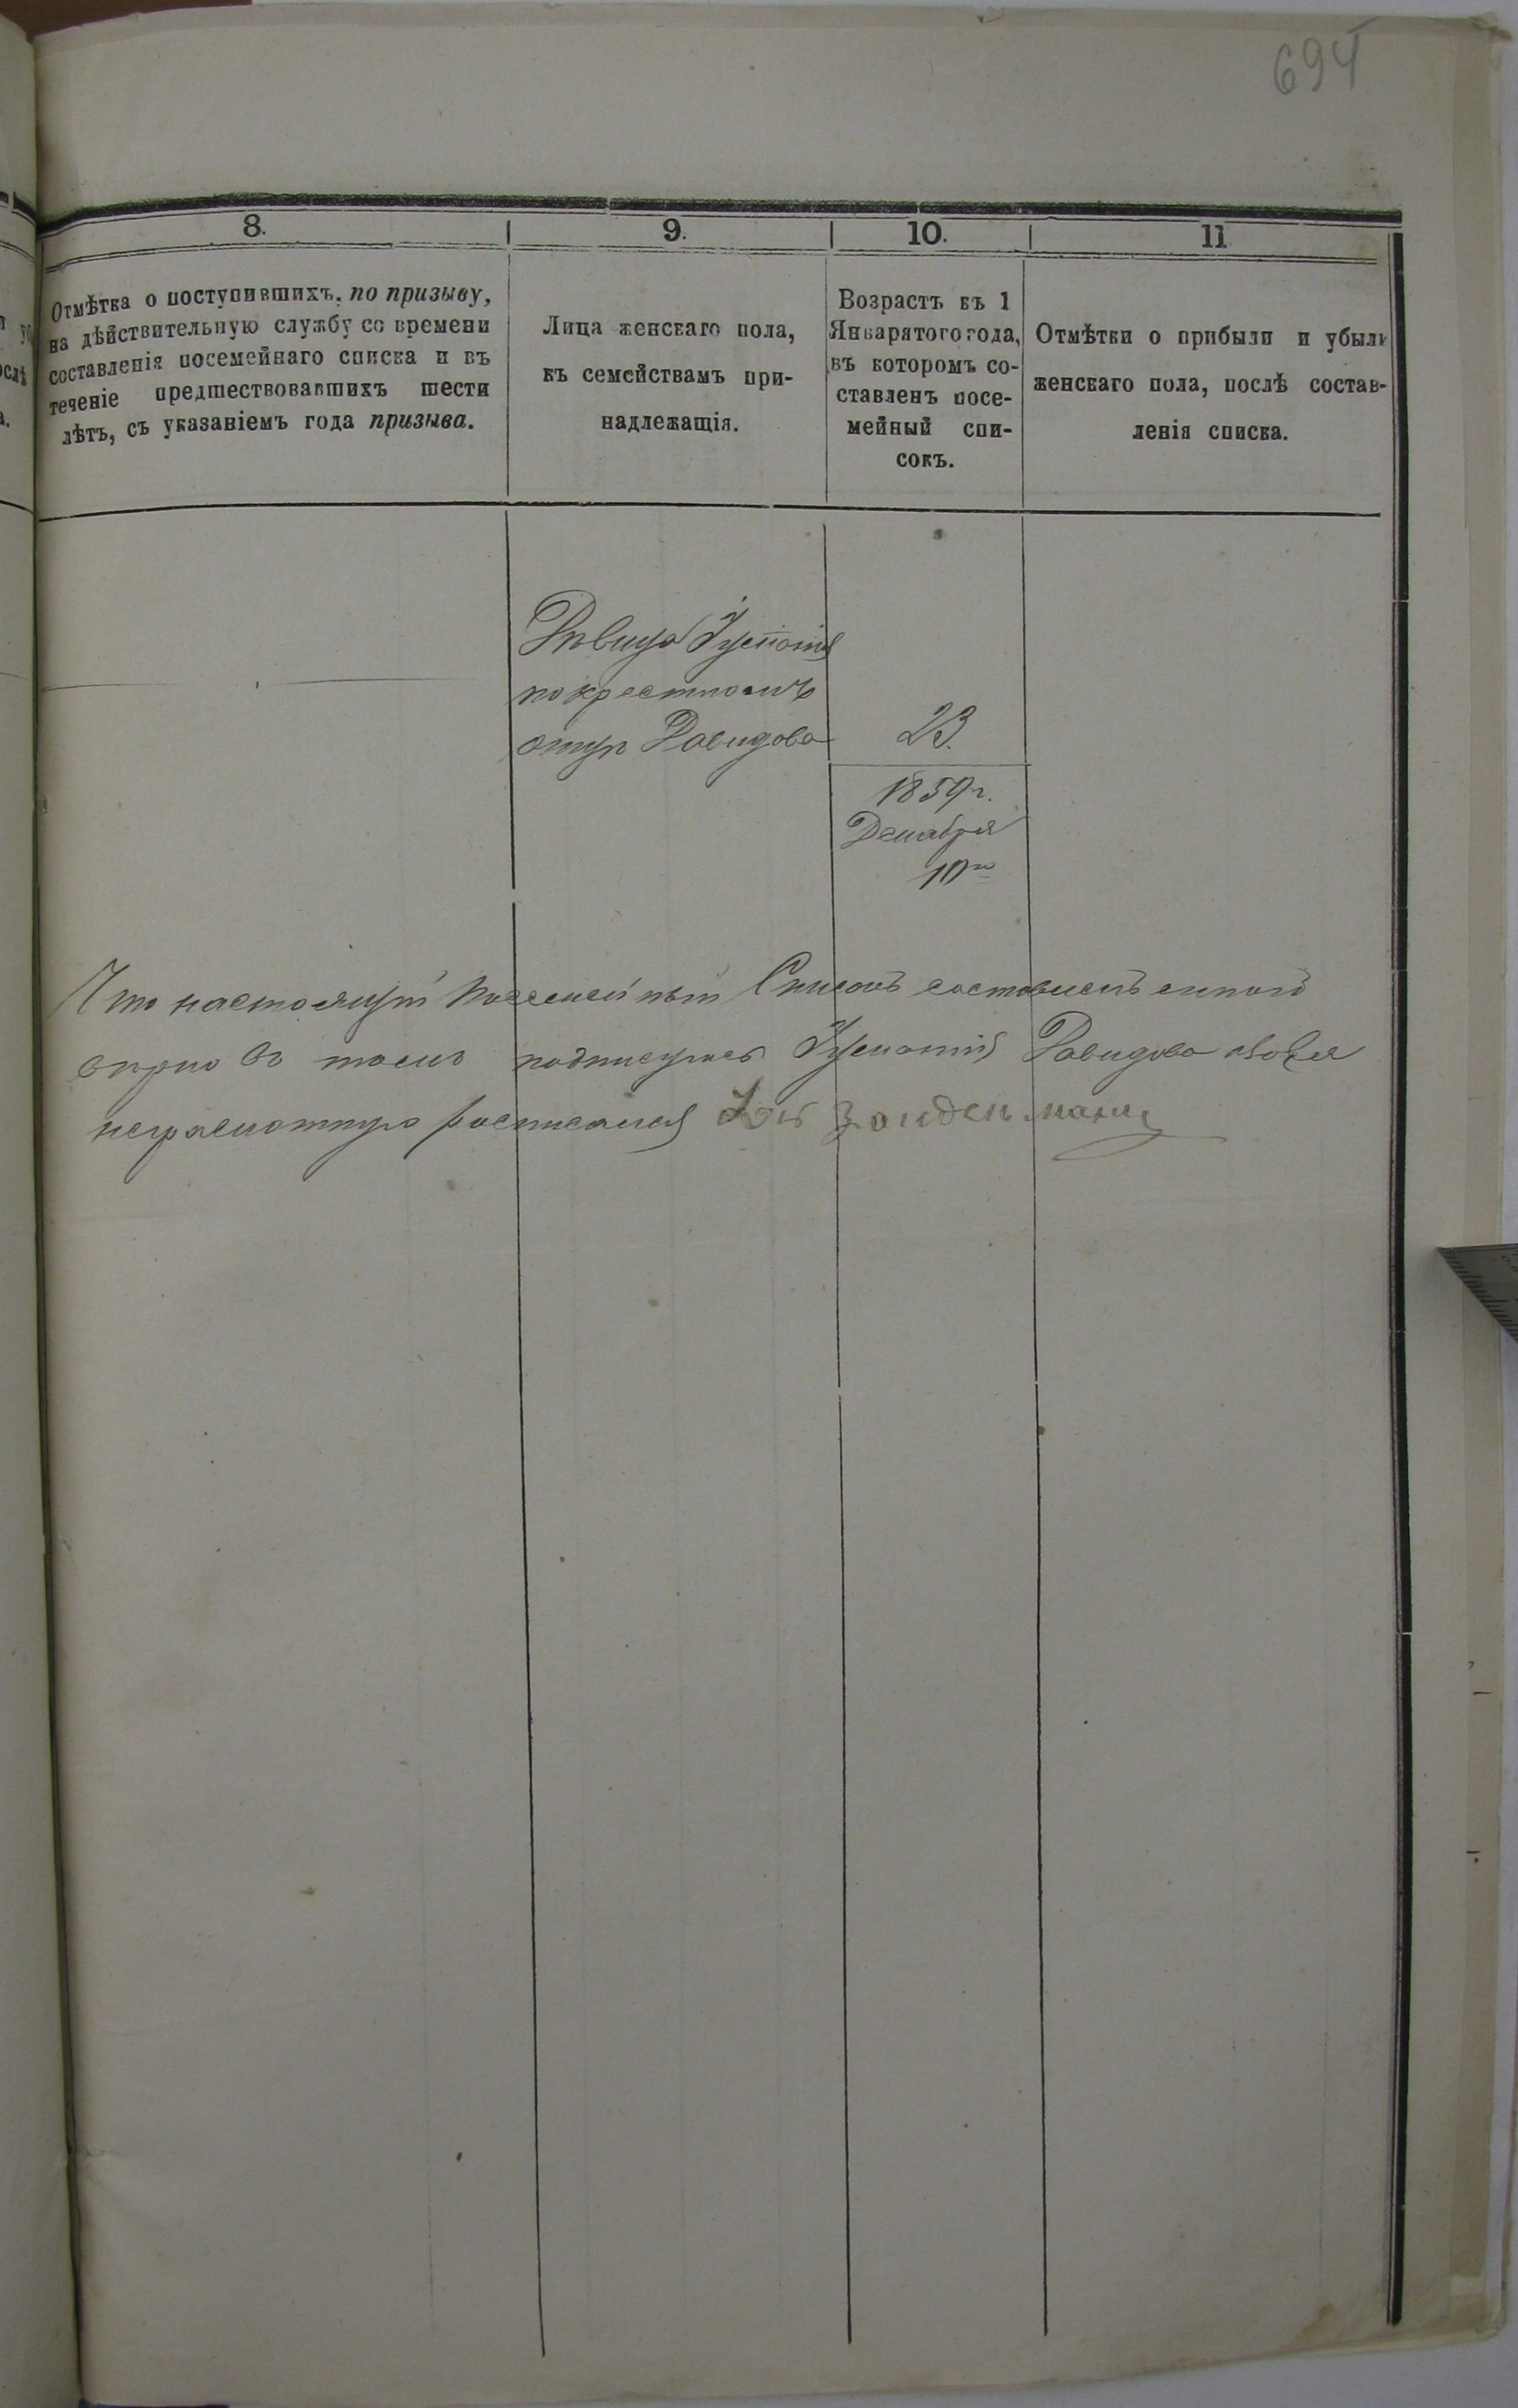 694
8.
9.
10.
11
Отмѣтка о поступившихъ, по призыву,
на дѣйствительную службу со времени
составленія посемейнаго списка и въ
теченіе предшествовавшихъ шести
лѣтъ, съ указаніемъ года призыва.
Лица женскаго пола,
къ семействамъ при-
надлежащія.
Возрастъ къ 1
Января того года,
въ которомъ со-
ставленъ посе-
мейный спи-
сокъ.
Отмѣтки о прибыли и убыли
женскаго пола, послѣ состав-
ленія списка.
Дѣвица
по крестномъ
отцѣ Давидова
23.
1859 г.
Декабря
10го
Что настоящій посемейный Списокъ составленъ мной
вѣрно въ томъ подписуюсь Давидова
неграмотную росписался